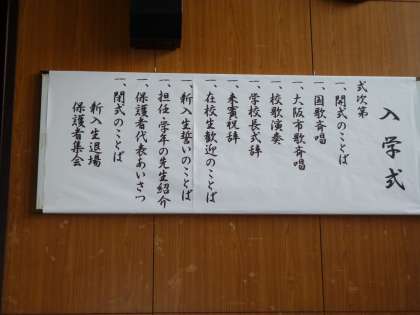 入学式
式次第
一、開式のことば
一、国歌斉唱
一、大阪市歌斉唱
一、校歌演奏
一、学校長式辞
一、来賓祝辞
一、在校生歓迎のことば
一、新入生誓いのことば
一、担任・学年の先生紹介
一、保護者代表あいさつ
一、閉式のことば
新入生退場
保護者集会